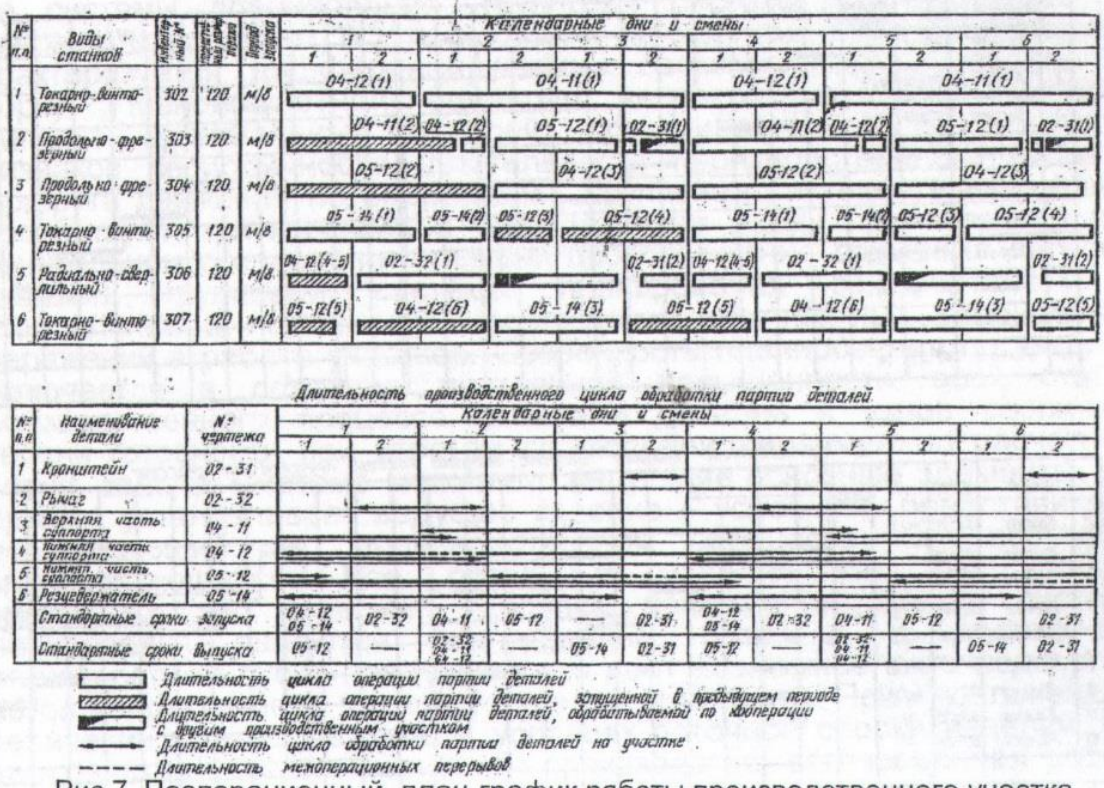 № п.п. Виды станков Период загрузки Календарные дни и смены
1 2 3 4 5 6
1 2 1 2 1 2 1 2 1 2 1 2
04-12(1) 04-11(1) 04-12(1) 04-11(1)
1 Токарно-винторезный 302 120 м/в
04-11(2) 04-12(2) 05-12(1) 02-31(1) 04-11(2) 04-12(2) 05-12(1) 02-31(1)
2 Продольно-фрезерный 303 120 м/в
05-12(2) 04-12(3) 05-12(2) 04-12(3)
3 Продольно-фрезерный 304 120 м/в
05-14(1) 05-14(2) 05-12(3) 05-12(4) 05-14(1) 05-14(2) 05-12(3) 05-12(4)
4 Токарно-винторезный 305 120 м/в
04-12(4-5) 02-32(1) 02-31(2) 04-12(4-5) 02-32(1) 02-31(2)
5 Радиально-сверлильный 306 120 м/в
05-12(5) 04-12(6) 05-14(3) 05-12(5) 04-12(6) 05-14(3) 05-12(5)
6 Токарно-винторезный 307 120 м/в
Длительность производственного цикла обработки партии деталей
№ п.п Наименование детали № чертежа Календарные дни и смены
1 2 3 4 5 6
1 2 1 2 1 2 1 2 1 2 1 2
1 Кронштейн 02-31
2 Рычаг 02-32
3 Верхняя часть суппорта 04-11
4 Нижняя часть суппорта 04-12
5 Нижняя часть суппорта 05-12
6 Резцедержатель 05-14
Стандартные сроки запуска 04-12 05-14 02-32 04-11 05-12 — 02-31 04-12 05-14 02-32 04-11 05-12 — 02-31
Стандартные сроки выпуска 05-12 — 02-32 04-11 04-12 — 05-14 02-31 05-12 — 02-32 04-11 04-12 — 05-14 02-31
Длительность цикла операции партии деталей
Длительность цикла операции партии деталей, запущенной в предыдущем периоде
Длительность цикла операции партии деталей, обрабатываемой по кооперации
с другим производственным участком
Длительность цикла обработки партии деталей на участке
Длительность межоперационных перерывов
Рис.7. Пооперационный план-график работы производственного участка